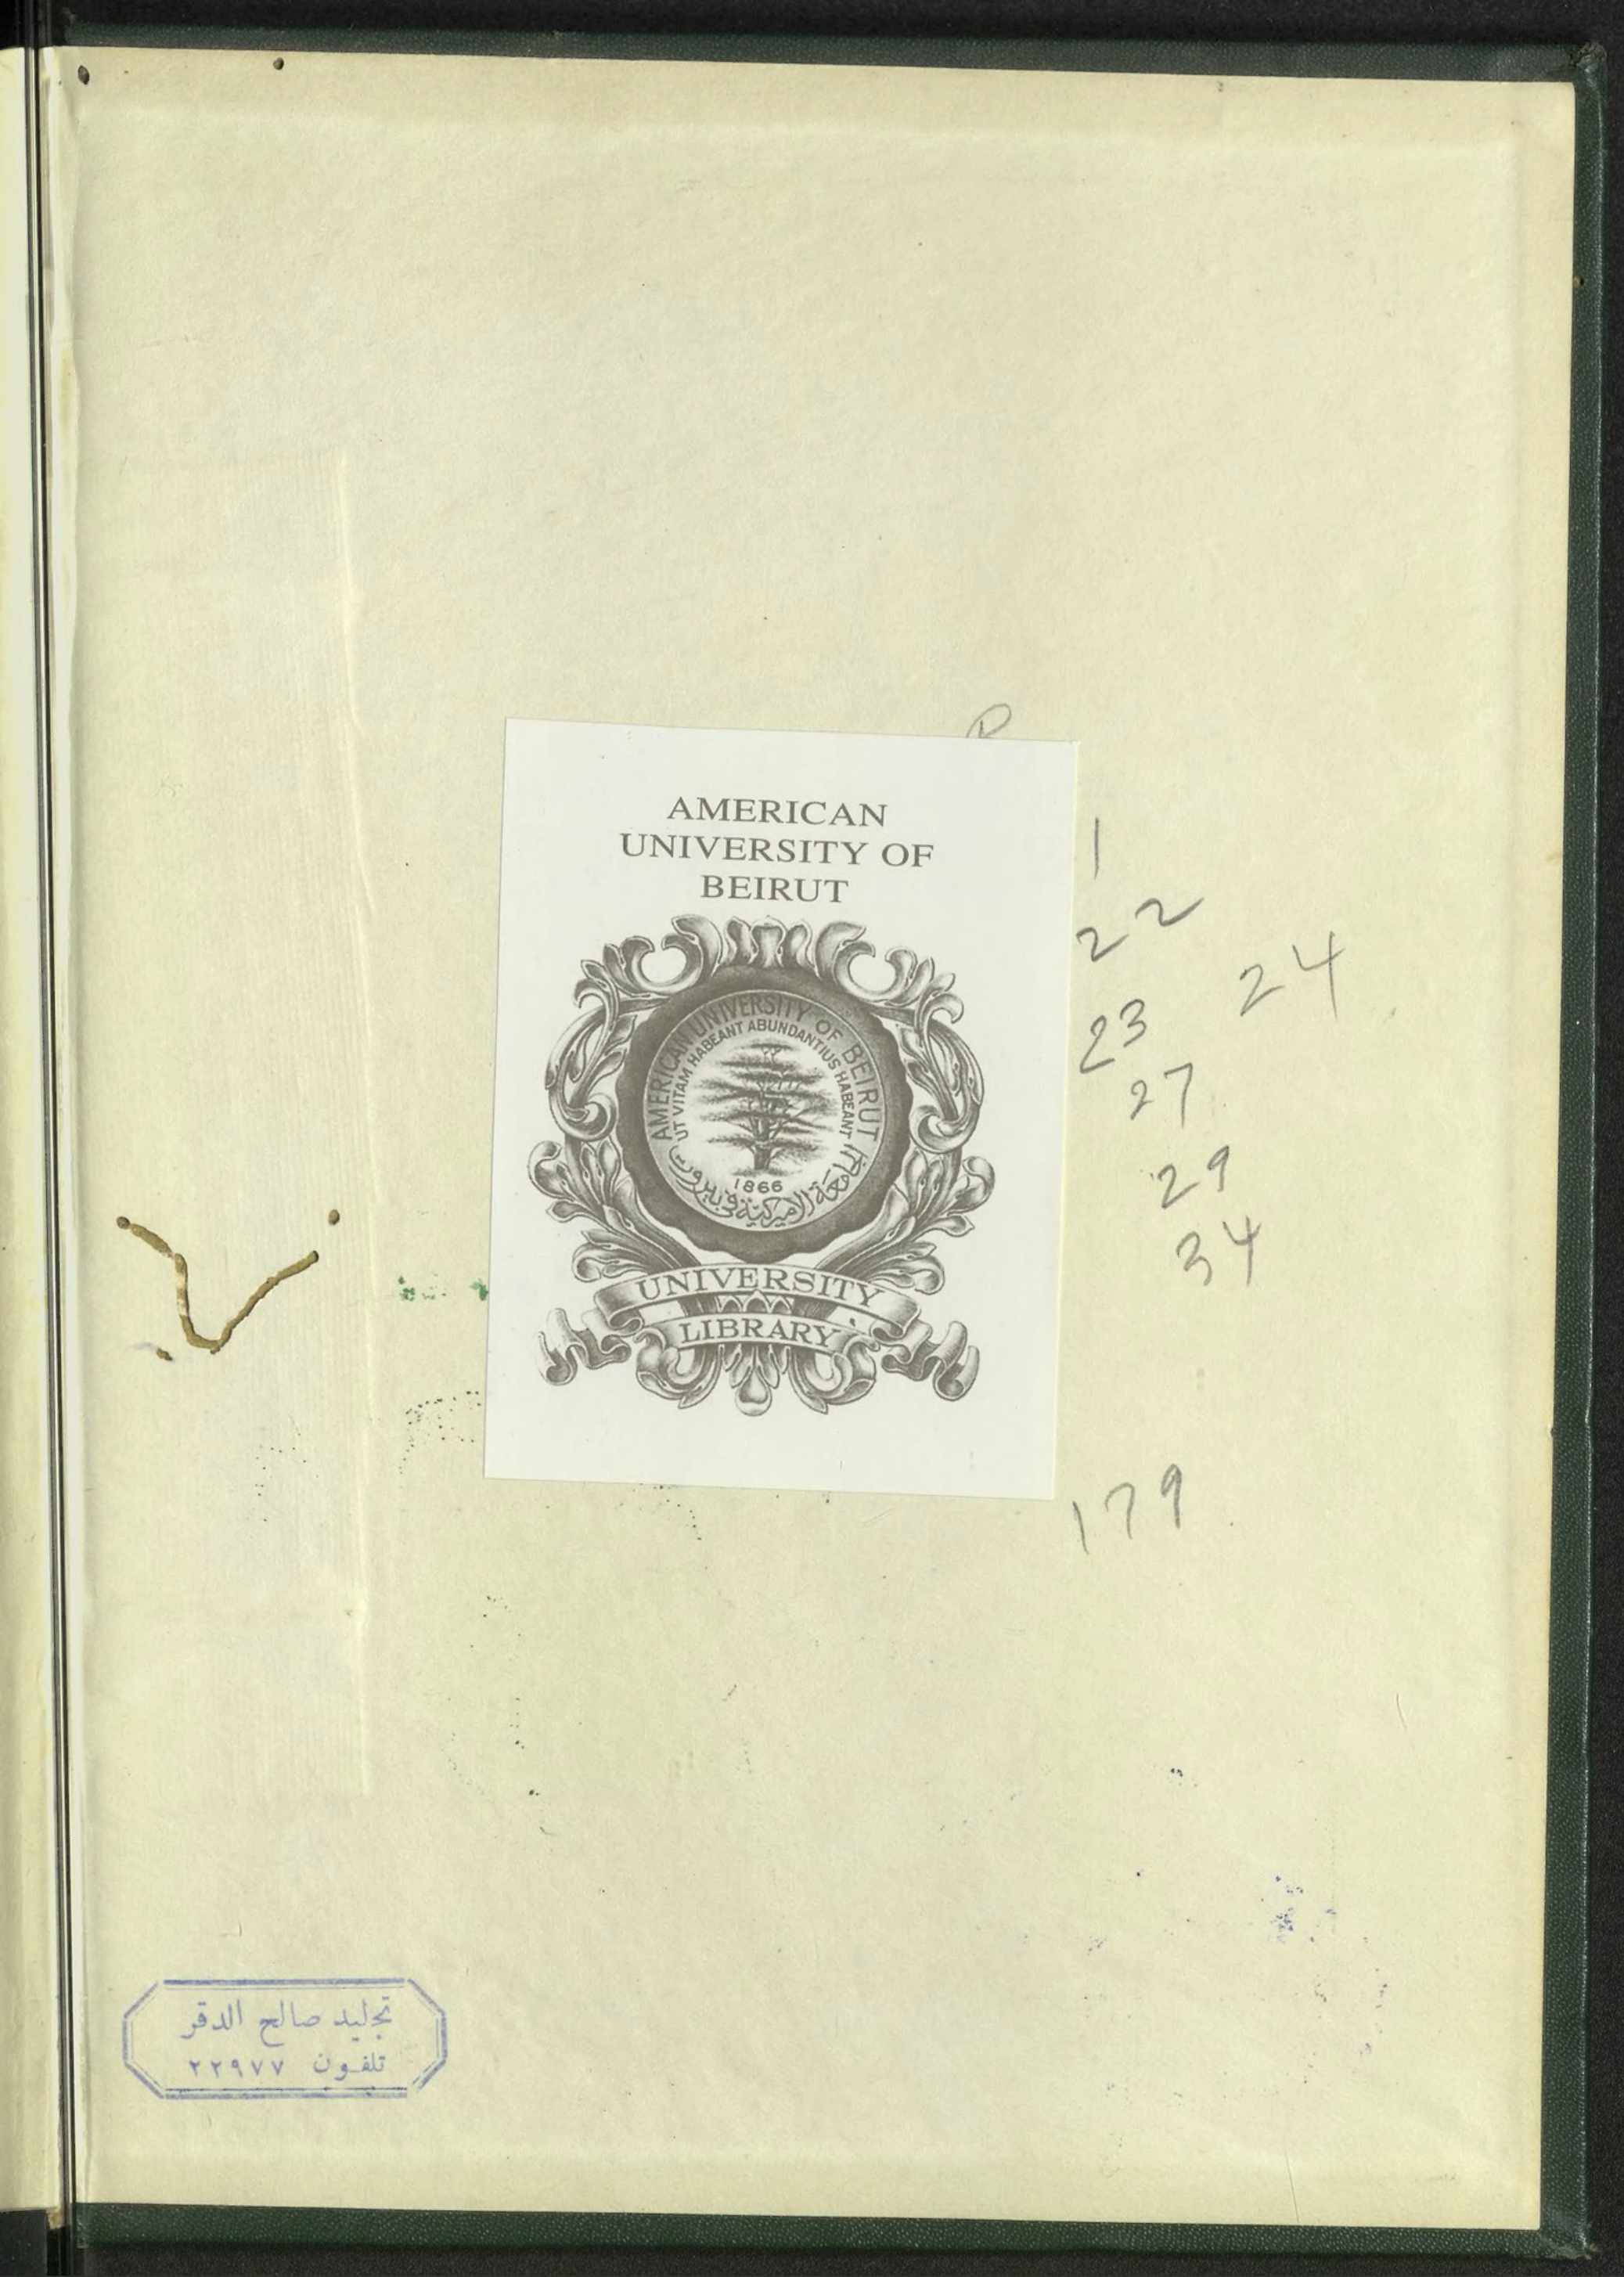 P
AMERICAN
UNIVERSITY OF
BEIRUT
AMERICAN UNIVERSITY OF BEIRUT
UT VITAM HABEANT ABUNDANTIUS HABEANT
1866
الجامعة الاميركية في بيروت
UNIVERSITY
LIBRARY
1
22
24
23
27
29
34
179
تجليد صالح الدقر
تلفون ٢٢٩٧٧